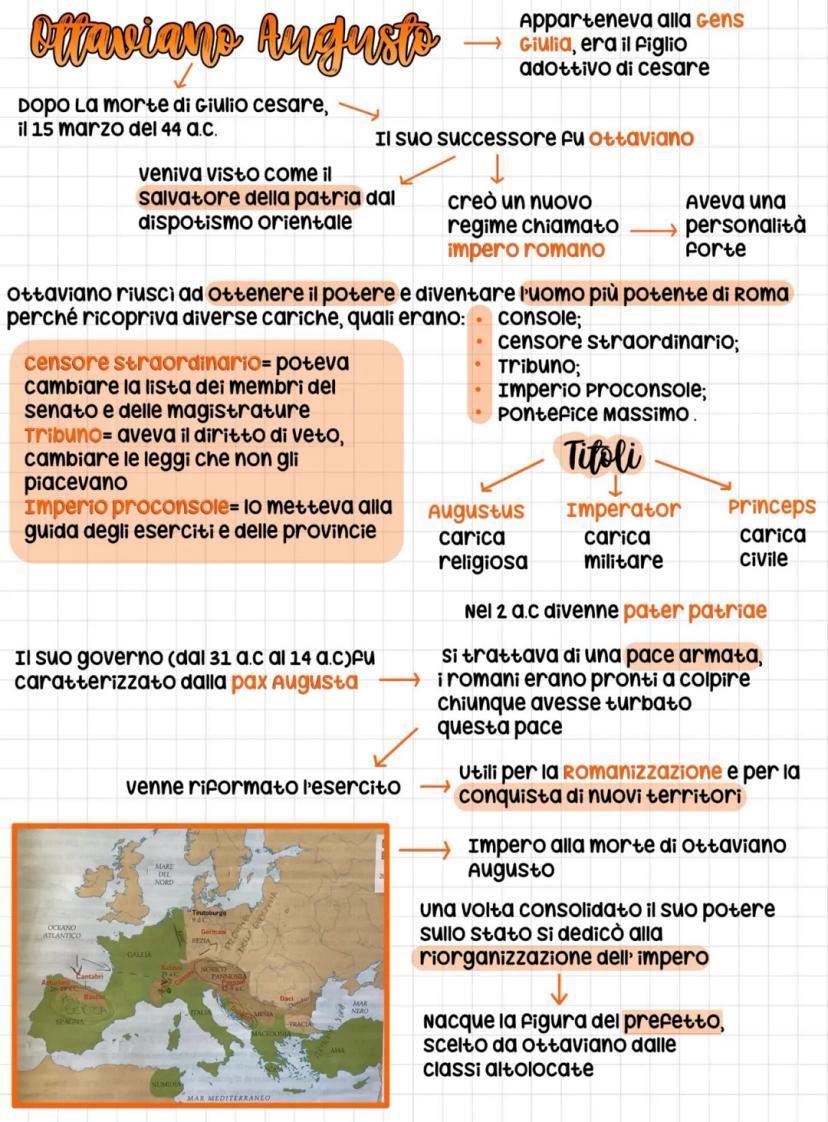 Ottaviano Augusto
Apparteneva alla Gens
Giulia, era il figlio
adottivo di cesare
Dopo La morte di Giulio cesare,
il 15 marzo del 44 a.c.
Il suo successore fu ottaviano
veniva visto come il
salvatore della patria dal
dispotismo orientale
creò un nuovo
regime chiamato
impero romano
Aveva una
personalità
forte
ottaviano riuscì ad ottenere il potere e diventare l'uomo più potente di Roma
perché ricopriva diverse cariche, quali erano:
• console;
• censore straordinario;
• Tribuno;
• Imperio Proconsole;
• Pontefice Massimo.
censore straordinario= poteva
cambiare la lista dei membri del
senato e delle magistrature
Tribuno= aveva il diritto di veto,
cambiare le leggi che non gli
piacevano
Imperio proconsole= lo metteva alla
guida degli eserciti e delle provincie
Titoli
Augustus
carica
religiosa
Imperator
carica
militare
Princeps
carica
civile
Nel 2 a.c divenne pater patriae
Il suo governo (dal 31 a.c al 14 a.c)fu
caratterizzato dalla pax Augusta
si trattava di una pace armata,
i romani erano pronti a colpire
chiunque avesse turbato
questa pace
venne riformato l'esercito
utili per la Romanizzazione e per la
conquista di nuovi territori
Impero alla morte di ottaviano
Augusto
una volta consolidato il suo potere
sullo stato si dedicò alla
riorganizzazione dell' impero
Nacque la figura del prefetto,
scelto da ottaviano dalle
classi altolocate
MARE
DEL
NORD
OCEANO
ATLANTICO
Teutoburgo
9 d.C.
Germani
REZIA
GALLIA
NORICO
PANNONIA
Cantabri
Asturiani
Baschi
SPAGNA
ITALIA
Daci
MESIA
TRACIA
MACEDONIA
MAR
NERO
ASIA
NUMIDIA
MAR MEDITERRANEO